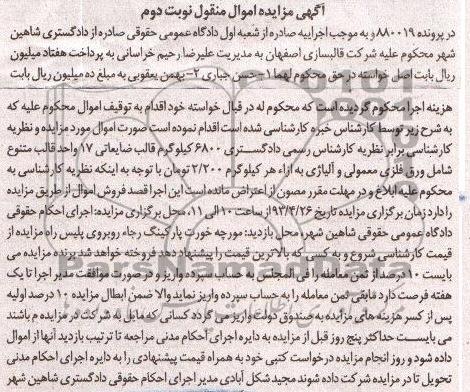 آگهی مزایده اموال منقول نوبت دوم
در پرونده ۸۸۰۰۱۹ و به موجب اجراییه صادره از شعبه اول دادگاه عمومی حقوقی صادره از دادگستری شاهین
شهر محکوم علیه شرکت قالبسازی اصفهان به مدیریت علیرضا رحیم خراسانی به پرداخت هفتاد میلیون
ریال بابت اصل خواسته در حق محکوم لهما ۱- حسن جباری ۲- بهمن یعقوبی به مبلغ ده میلیون ریال بابت
هزینه اجرا محکوم گردیده است که محکوم له در قبال خواسته خود اقدام به توقیف اموال محکوم علیه که
به شرح زیر توسط کارشناس خبره کارشناسی شده است اقدام نموده است صورت اموال مورد مزایده و نظریه
کارشناسی برابر نظریه کارشناس رسمی دادگستری ۶۸۰۰ کیلوگرم قالب ضایعاتی ۱۷ واحد قالب متنوع
شامل ورق فلزی معمولی و آلیاژی به ازاء هر کیلوگرم ۲/۲۰۰ تومان با توجه به اینکه نظریه کارشناسی به
محکوم علیه ابلاغ و در مهلت مقرر مصون از اعتراض مانده است این اجرا قصد فروش اموال از طریق مزایده
را دارد زمان برگزاری مزایده تاریخ ۹۳/۴/۲۶ از ساعت ۱۰ الی ۱۱، محل برگزاری مزایده: اجرای احکام حقوقی
دادگاه عمومی حقوقی شاهین شهر محل بازدید: مورچه خورت پارکینگ رجاء روبروی پلیس راه مزایده از
قیمت کارشناسی شروع و به کسی که بالاترین قیمت را پیشنهاد دهد فروخته خواهد شد برنده مزایده می
بایست ۱۰ درصد از ثمن معامله را فی المجلس به حساب سپرده واریز و در صورت موافقت مدیر اجرا تا یک
هفته فرصت دارد مابقی ثمن معامله را به حساب سپرده واریز نماید والا ضمن ابطال مزایده ۱۰ درصد اولیه
پس از کسر هزینه های مزایده به صندوق دولت واریز می گردد کسانی که مایل به شرکت در مزایده م باشند
می بایست حداکثر پنج روز قبل از مزایده به دایره اجرای احکام مدنی مراجعه تا ترتیب بازدید آنها از اموال
داده شود و روز انجام مزایده درخواست کتبی خود به همراه قیمت پیشنهادی را به دایره اجرای احکام مدنی
تحویل تا در مزایده شرکت داده شوند مجید شکل آبادی مدیر اجرای احکام حقوقی دادگستری شاهین شهر